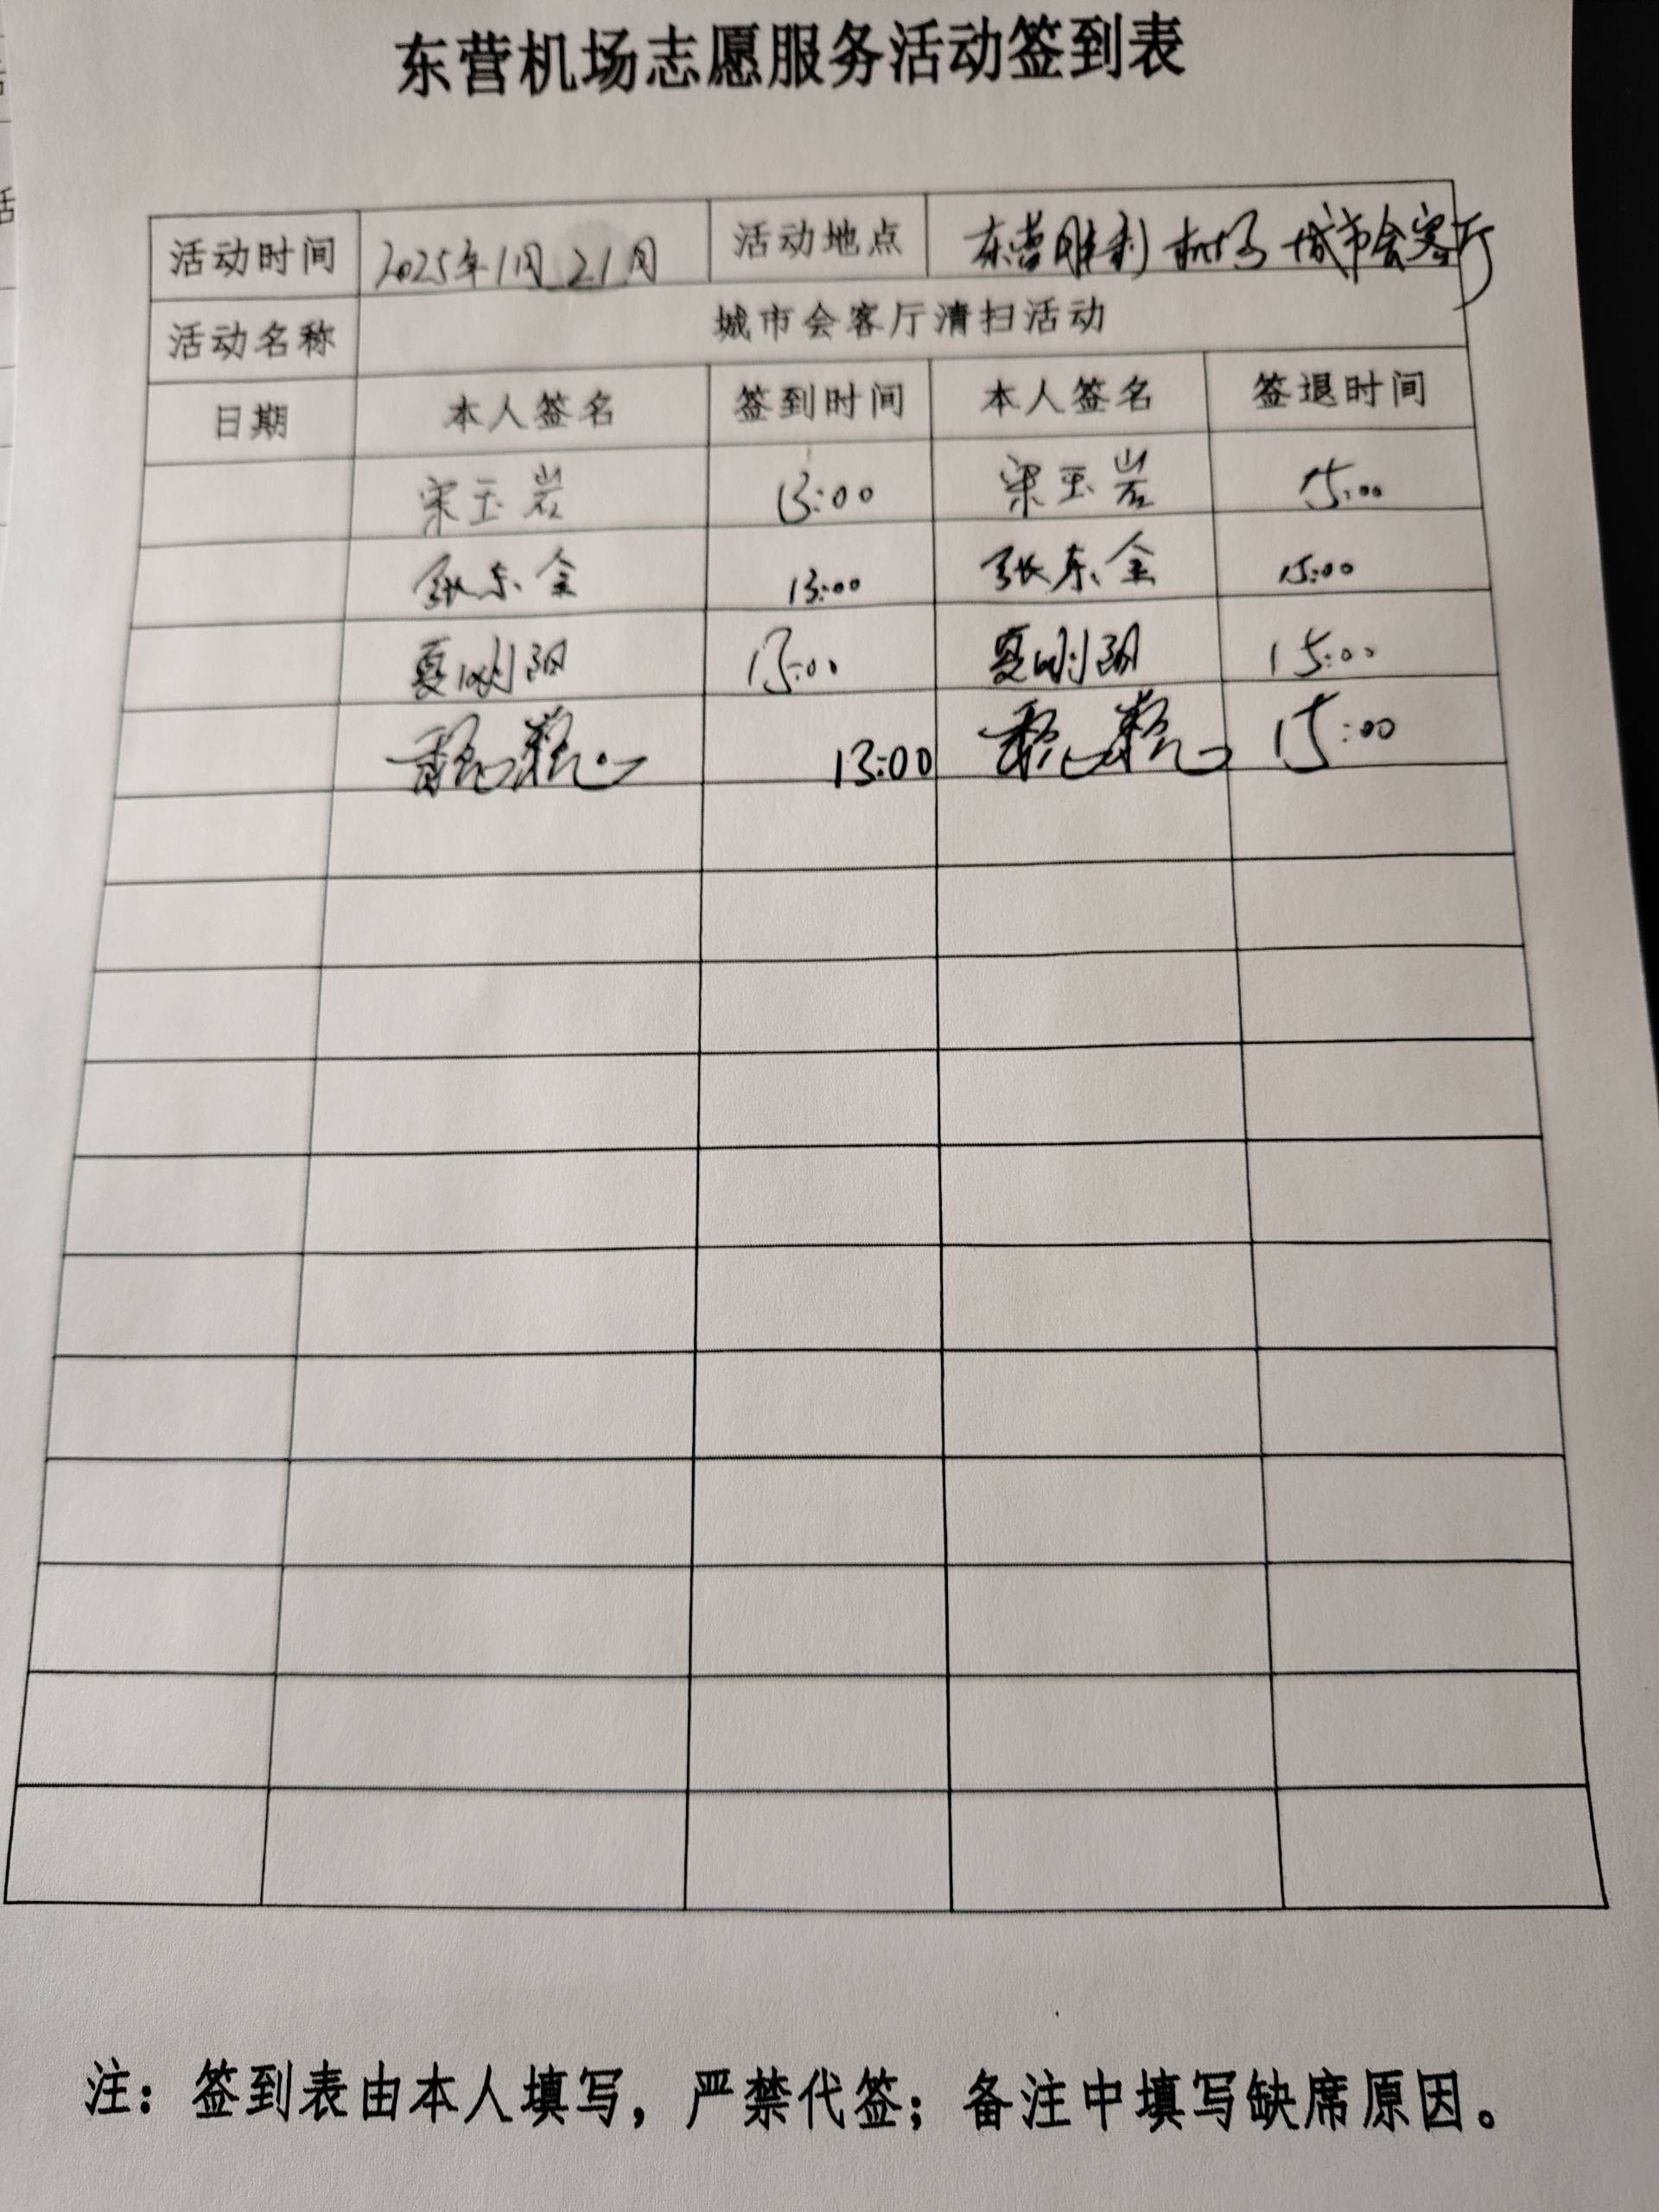 东营机场志愿服务活动签到表
活动时间 2025年1月21日 活动地点 东营胜利机场城市会客厅
活动名称 城市会客厅清扫活动
日期 本人签名 签到时间 本人签名 签退时间
宋玉岩 13:00 宋玉岩 15:00
张东金 13:00 张东金 15:00
夏刚阳 13:00 夏刚阳 15:00
13:00 15:00
注：签到表由本人填写，严禁代签；备注中填写缺席原因。